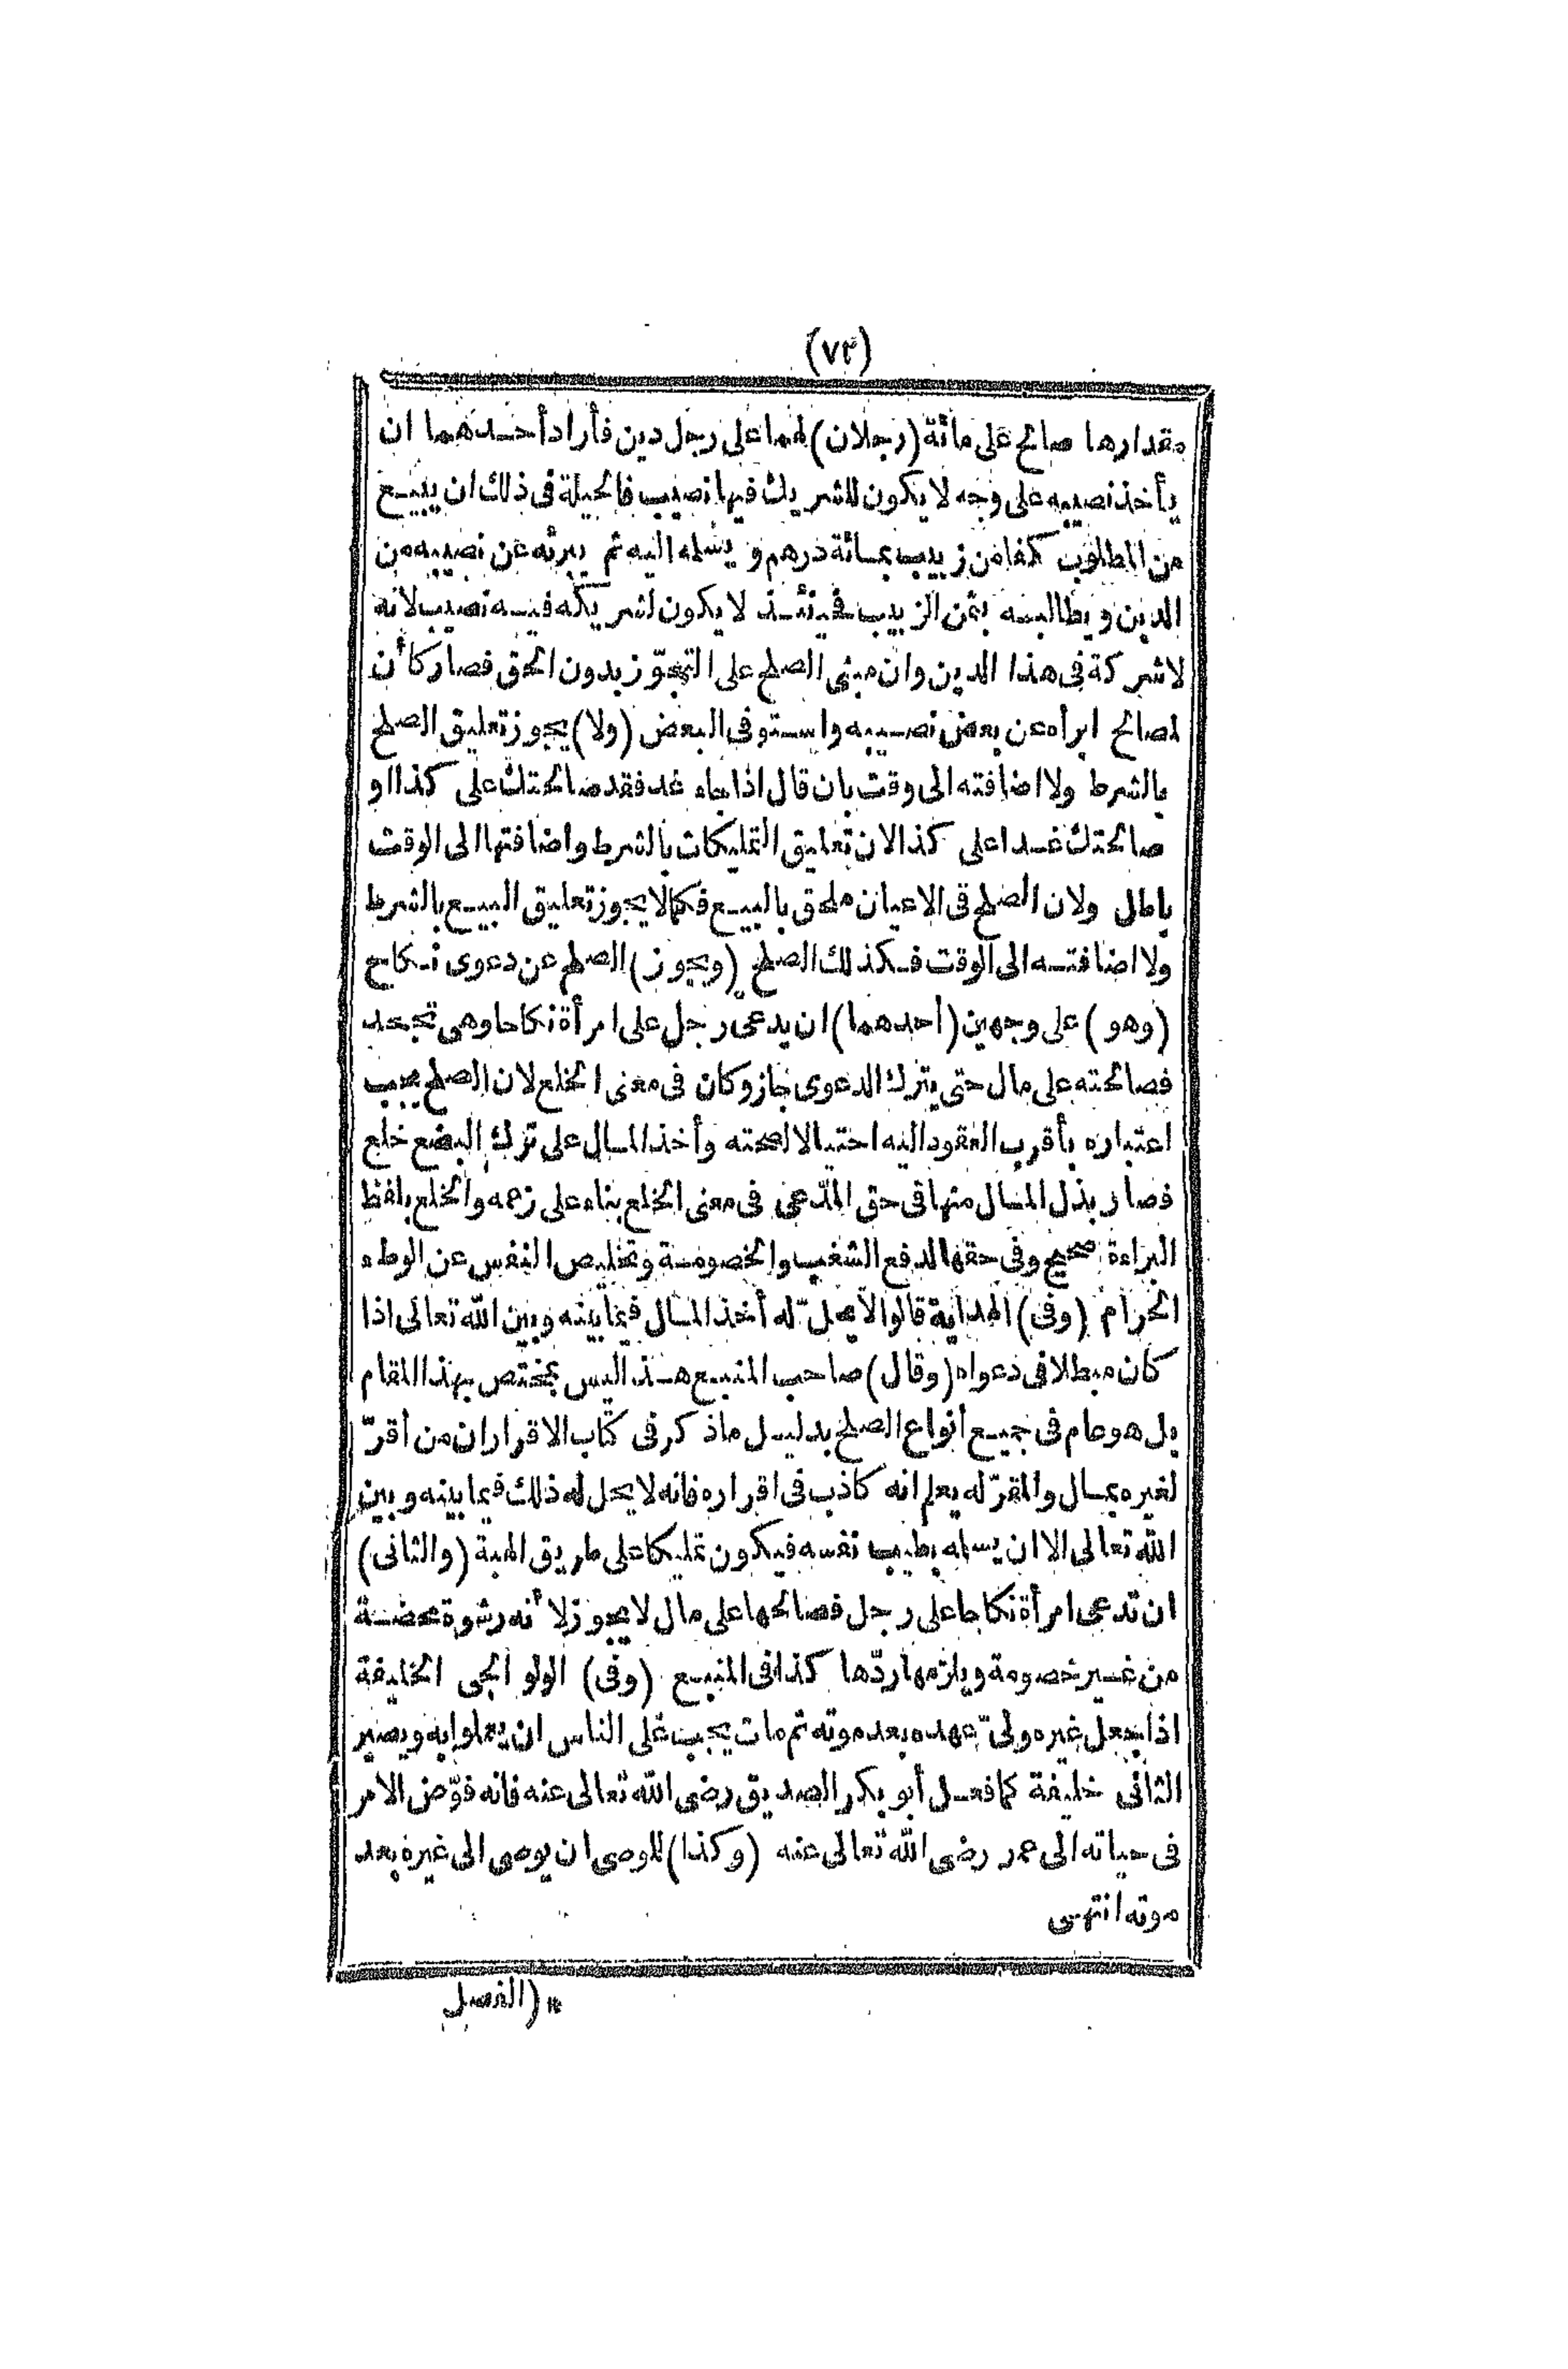 (٧٣)
مقدارها صالح على مائة (رجلان) لهما على رجل دين فأراد أحدهما ان
يأخذ نصيبه على وجه لا يكون للشريك فيها نصيب فالحيلة فى ذلك ان يبيع
من المطلوب كفا من زبيب بمائة درهم ويسلمه اليه ثم يبرئه عن نصيبه من
الدين ويطالبه بثمن الزبيب فحينئذ لا يكون لشريكه فيه نصيب لانه
لا شركة فى هذا الدين وان مبنى الصلح على التجوّز بدون الحق فصار كأن
لصالح ابرأه عن بعض نصيبه واستوفى البعض (ولا) يجوز تعليق الصلح
بالشرط ولا اضافته الى وقت بان قال اذا جاء غد فقد صالحتك على كذا او
صالحتك غدا على كذا لان تعليق التمليكات بالشرط واضافتها الى الوقت
باطل ولان الصلح فى الاعيان ملحق بالبيع فكما لا يجوز تعليق البيع بالشرط
ولا اضافته الى الوقت فكذلك الصلح (ويجوز) الصلح عن دعوى نكاح
(وهو) على وجهين (أحدهما) ان يدعى رجل على امرأة نكاحا وهى تجحد
فصالحته على مال حتى يترك الدعوى جاز وكان فى معنى الخلع لان الصلح يجب
اعتباره بأقرب العقود اليه احتيالا لصحته وأخذ المال على ترك البضع خلع
فصار بذل المال منها فى حق المدّعى فى معنى الخلع بناء على زعمه والخلع بلفظ
البراءة صحيح وفى حقها لدفع الشغب والخصومة وتخليص النفس عن الوطء
الحرام (وفى) الهداية قالوا لا يحلّ له أخذ المال فيما بينه وبين الله تعالى اذا
كان مبطلا فى دعواه (وقال) صاحب المنبع هذا ليس بمختص بهذا المقام
بل هو عام فى جميع أنواع الصلح بدليل ما ذكر فى كتاب الاقرار ان من أقرّ
لغيره بمال والمقرّ له يعلم انه كاذب فى اقراره فانه لا يحل له ذلك فيما بينه وبين
الله تعالى الا ان يسلمه بطيب نفسه فيكون تمليكا على طريق الهبة (والثانى)
ان تدعى امرأة نكاحا على رجل فصالحها على مال لا يجوز لأنه رشوة محضة
من غير خصومة ويلزمها ردّها كذا فى المنبع (وفى) الولوالجى الخليفة
اذا جعل غيره ولىّ عهده بعد موته ثم مات يجب على الناس ان يعملوا به ويصير
الثانى خليفة كما فعل أبو بكر الصديق رضى الله تعالى عنه فانه فوّض الامر
فى حياته الى عمر رضى الله تعالى عنه (وكذا) للوصى ان يوصى الى غيره بعد
موته انتهى
*(الفصل